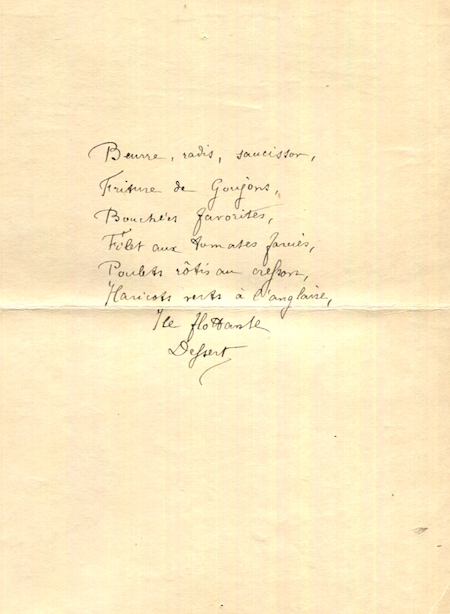 Beurre, radis, saucisson,
Friture de Goujons,
Bouchées favorites,
Filet aux tomates farcies,
Poulets rôtis au cresson,
Haricots verts à l'anglaise,
Ile flottante
Dessert